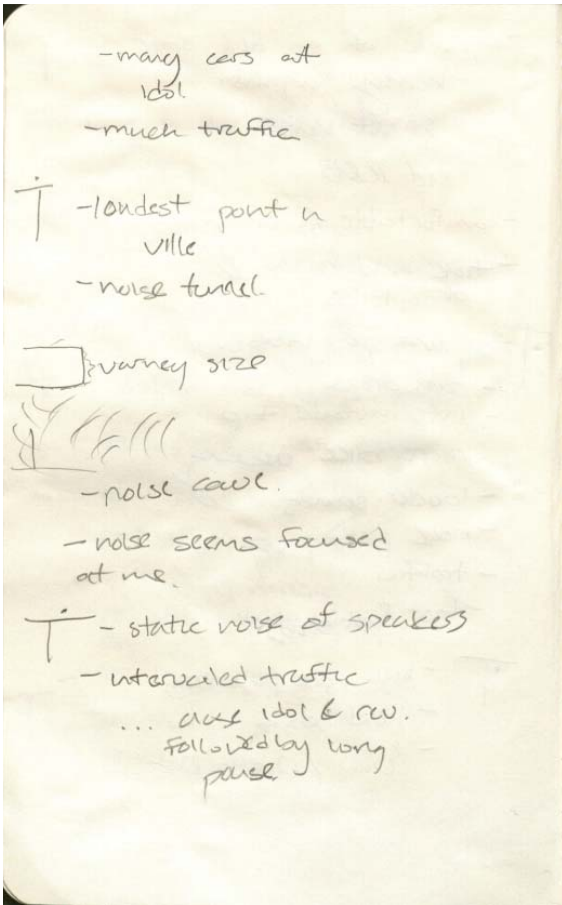 - many cars at
idol
- much traffic
- loudest point n
ville
- noise tunnel.
varney size
- noise cave.
- noise seems focused
at me.
- static noise of speakers
- intervaled traffic
... close idol & rev.
followed by long
pause